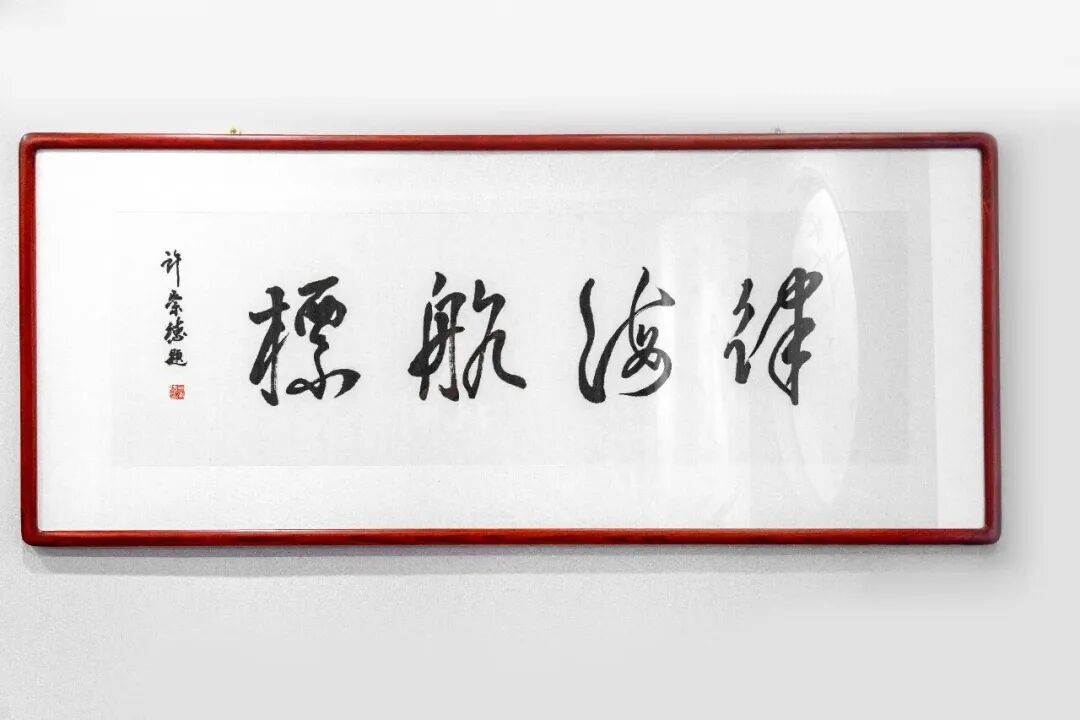 律海航標
许崇德題